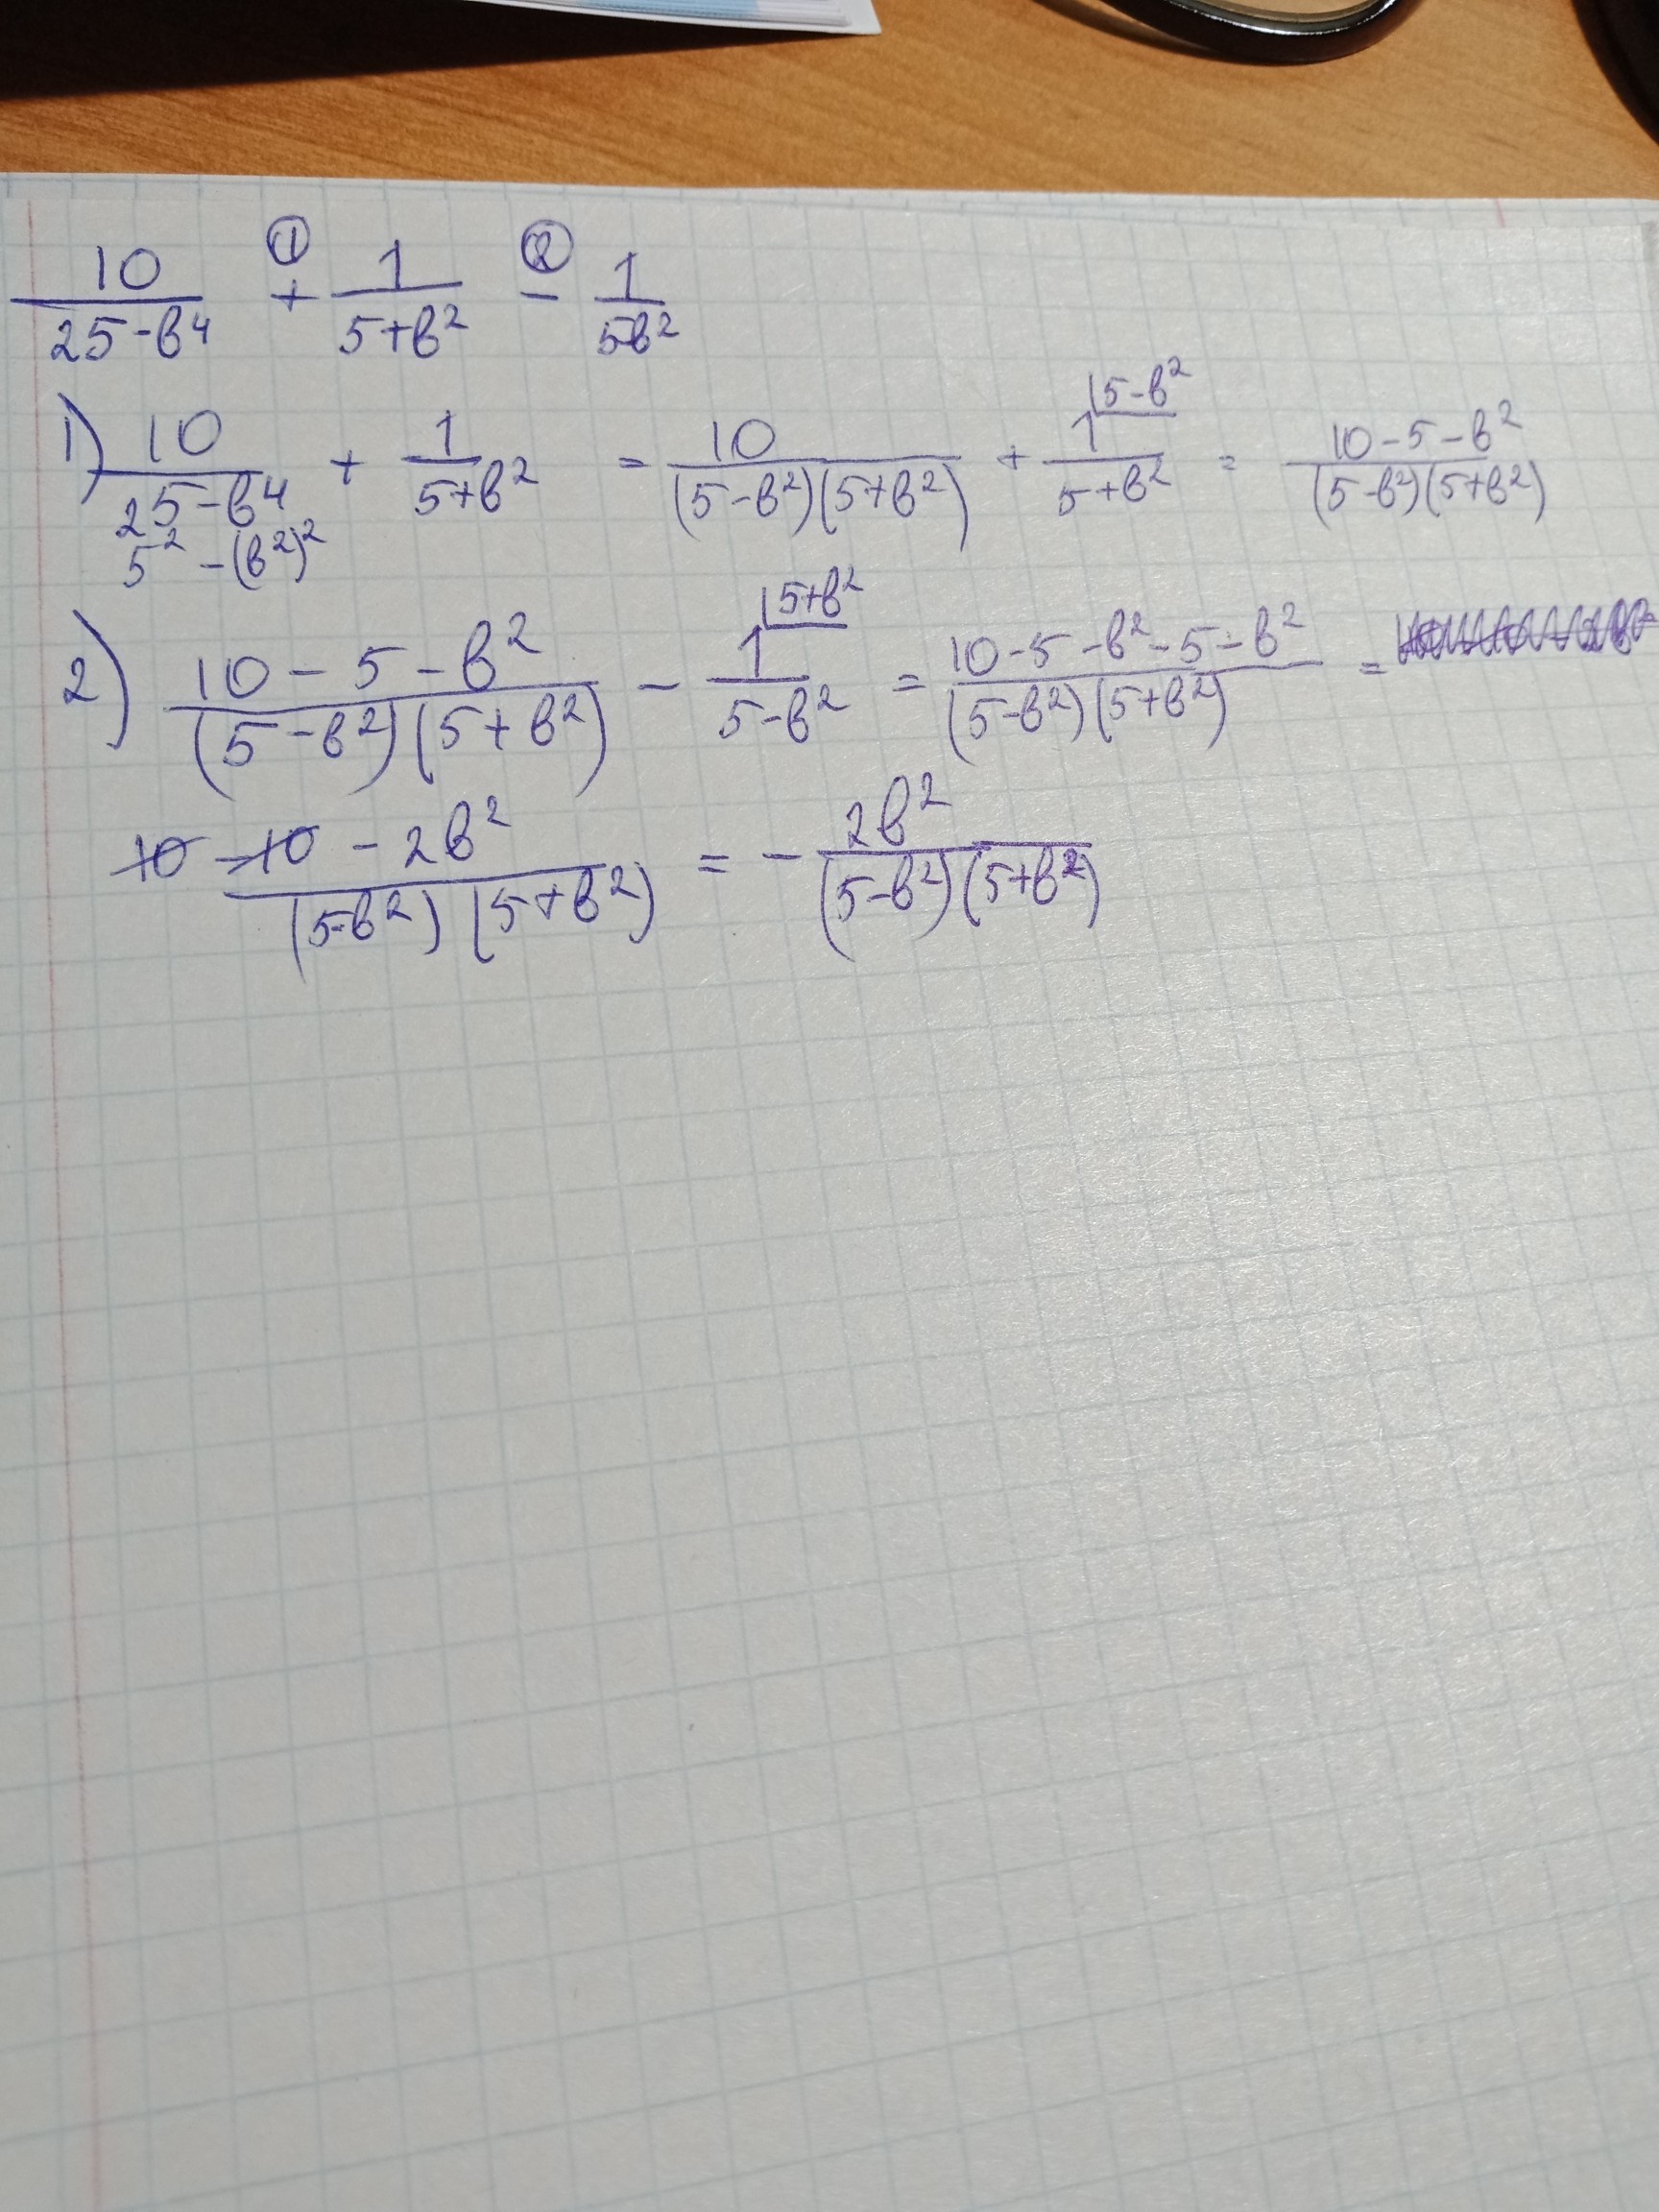 ① ②
10/(25-b⁴) + 1/(5+b²) - 1/(5-b²)
1) 10/(25-b⁴) + 1/(5+b²) = 10/((5-b²)(5+b²)) + 1/(5+b²) |5-b² = (10-5-b²)/((5-b²)(5+b²))
5² - (b²)²
2) (10-5-b²)/((5-b²)(5+b²)) - 1/(5-b²) |5+b² = (10-5-b²-5-b²)/((5-b²)(5+b²)) =
(10-10-2b²)/((5-b²)(5+b²)) = - 2b²/((5-b²)(5+b²))